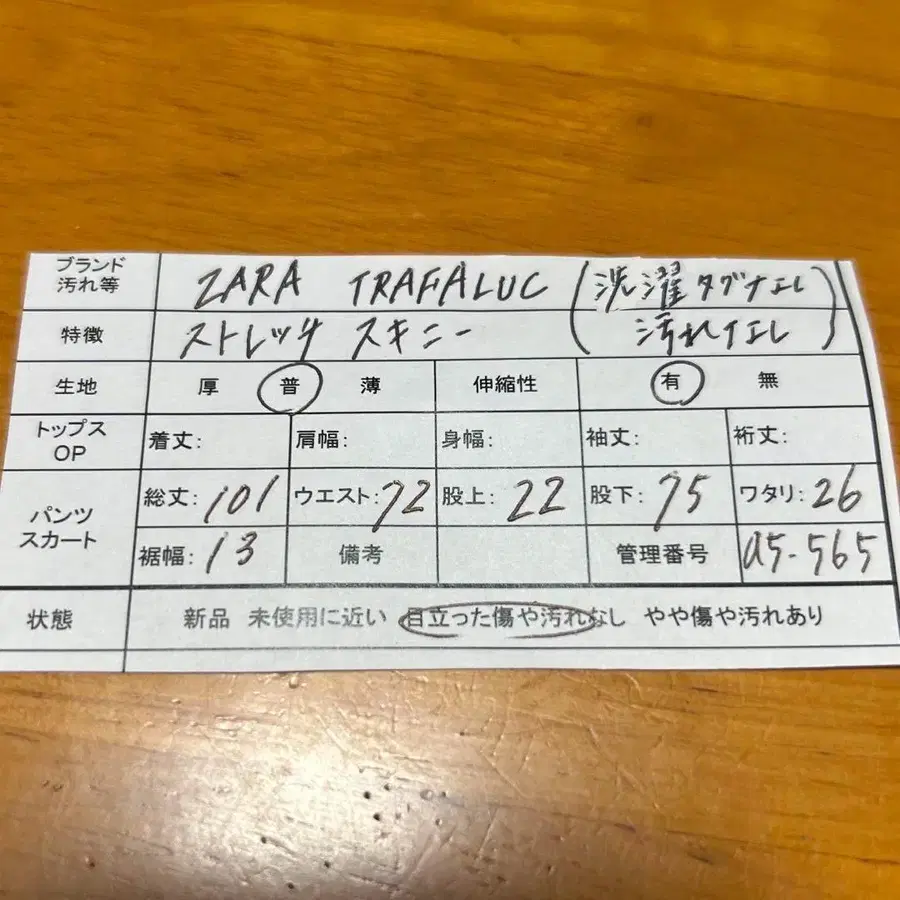 ブランド
汚れ等
ZARA TRAFALUC (洗濯タグナシ
汚れナシ)
特徴
ストレッチ スキニー
生地 厚 普 薄 伸縮性 有 無
トップス
OP
着丈: 肩幅: 身幅: 袖丈: 裄丈:
パンツ
スカート
総丈:101 ウエスト:72 股上:22 股下:75 ワタリ:26
裾幅:13 備考 管理番号 a5-565
状態 新品 未使用に近い 目立った傷や汚れなし やや傷や汚れあり